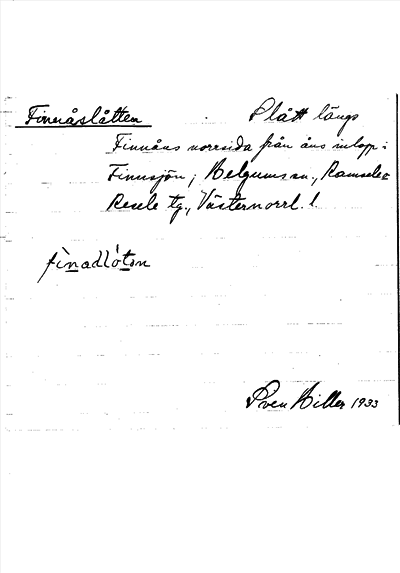 Finnåslåtten Slått längs
Finnåns norrsida från åns inlopp i
Finnsjön; Helgums sn., Ramsele o
Resele tg., Västernorrl. l.
fìnadlòtən
Sven Hiller 1933